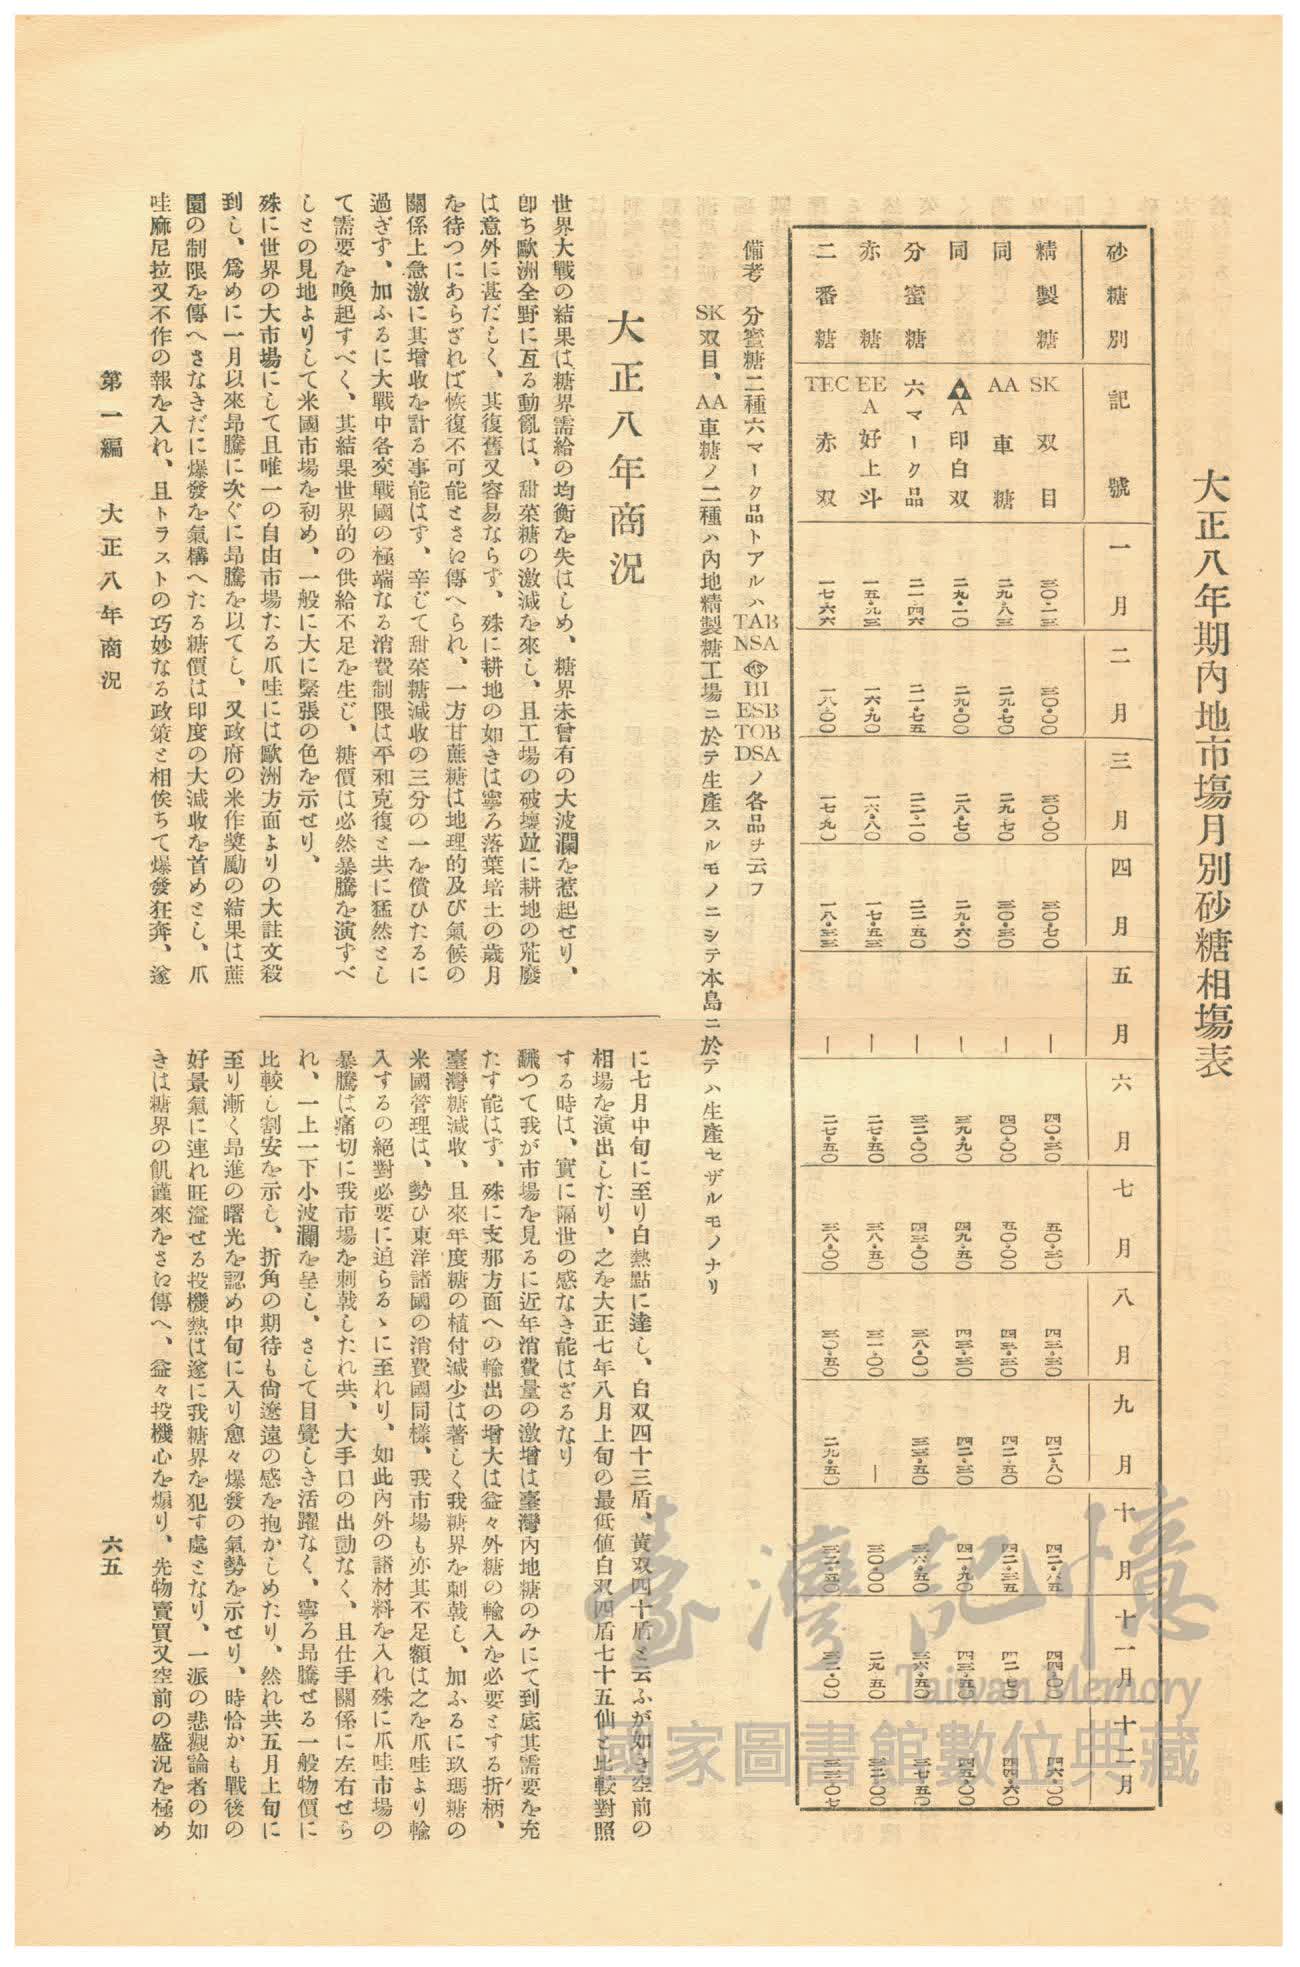 大正八年期內地市塲月別砂糖相塲表
砂糖別 記號 一月 二月 三月 四月 五月 六月 七月 八月 九月 十月 十一月 十二月
精製糖 SK 双目 三〇・一三 三〇・〇〇 三〇・〇〇 三〇・七〇 — 四〇・三〇 五〇・三〇 四三・三〇 四二・八〇 四二・八五 四四・〇〇 四六・〇〇
同 AA 車糖 二九・八三 二九・七〇 二九・七〇 三〇・三〇 — 四〇・〇〇 五〇・〇〇 四三・三〇 四二・五〇 四二・三五 四二・七〇 四四・六〇
同 A印白双 二九・一〇 二九・〇〇 二八・七〇 二九・六〇 — 三九・九〇 四九・五〇 四三・三〇 四二・三〇 四一・九〇 四三・五〇 四五・〇〇
分蜜糖 六マーク品 二一・四六 二一・七五 二二・一〇 二二・五〇 — 三二・〇〇 四三・〇〇 三八・〇〇 三三・五〇 三六・五〇 三六・五〇 三七・五〇
赤糖 EE A 好上斗 一五・九三 一六・九〇 一六・八〇 一七・五三 — 二七・五〇 三八・五〇 三一・〇〇 — 三〇・〇〇 二九・五〇 三二・〇〇
二番糖 TEC 赤双 一七・六六 一八・〇〇 一七・九〇 一八・三三 — 二七・五〇 三八・〇〇 三〇・五〇 二九・五〇 三二・五〇 三二・〇〇 三三・〇七
備考 分蜜糖二種六マーク品トアルハ TAB NSA HS III ESB TOB DSA ノ各品ヲ云フ
SK双目、AA車糖ノ二種ハ內地精製糖工場ニ於テ生產スルモノニシテ本島ニ於テハ生產セザルモノナリ
大正八年商況
世界大戰の結果は糖界需給の均衡を失はしめ、糖界未曾有の大波瀾を惹起せり、
卽ち歐洲全野に亙る動亂は、甜菜糖の激減を來し、且工場の破壞並に耕地の荒廢
は意外に甚だしく、其復舊又容易ならず、殊に耕地の如きは寧ろ落葉培土の歲月
を待つにあらざれば恢復不可能とさへ傳へられ、一方甘蔗糖は地理的及び氣候の
關係上急激に其增收を計る事能はず、辛じて甜菜糖減收の三分の一を償ひたるに
過ぎず、加ふるに大戰中各交戰國の極端なる消費制限は平和克復と共に猛然とし
て需要を喚起すべく、其結果世界的の供給不足を生じ、糖價は必然暴騰を演ずべ
しとの見地よりして米國市場を初め、一般に大に緊張の色を示せり、
殊に世界の大市場にして且唯一の自由市場たる爪哇には歐洲方面よりの大註文殺
到し、爲めに一月以來昂騰に次ぐに昂騰を以てし、又政府の米作獎勵の結果は蔗
園の制限を傳へさなきだに爆發を氣構へたる糖價は印度の大減收を首めとし、爪
哇麻尼拉又不作の報を入れ、且トラストの巧妙なる政策と相俟ちて爆發狂奔、遂
に七月中旬に至り白熱點に達し、白双四十三盾、黃双四十盾と云ふが如き空前の
相場を演出したり、之を大正七年八月上旬の最低値白双四盾七十五仙と比較對照
する時は、實に隔世の感なき能はざるなり
飜つて我が市場を見るに近年消費量の激增は臺灣內地糖のみにて到底其需要を充
たす能はず、殊に支那方面への輸出の增大は益々外糖の輸入を必要とする折柄、
臺灣糖減收、且來年度糖の植付減少は著しく我糖界を刺戟し、加ふるに玖瑪糖の
米國管理は、勢ひ東洋諸國の消費國同樣、我市場も亦其不足額は之を爪哇より輸
入するの絕對必要に迫らるゝに至れり、如此內外の諸材料を入れ殊に爪哇市場の
暴騰は痛切に我市場を刺戟したれ共、大手口の出動なく、且仕手關係に左右せら
れ、一上一下小波瀾を呈し、さして目覺しき活躍なく、寧ろ昂騰せる一般物價に
比較し割安を示し、折角の期待も尙遼遠の感を抱かしめたり、然れ共五月上旬に
至り漸く昂進の曙光を認め中旬に入り愈々爆發の氣勢を示せり、時恰かも戰後の
好景氣に連れ旺溢せる投機熱は遂に我糖界を犯す處となり、一派の悲觀論者の如
きは糖界の飢饉來をさへ傳へ、益々投機心を煽り、先物賣買又空前の盛況を極め
第一編 大正八年商況
六五
臺灣記憶
Taiwan Memory
國家圖書館數位典藏